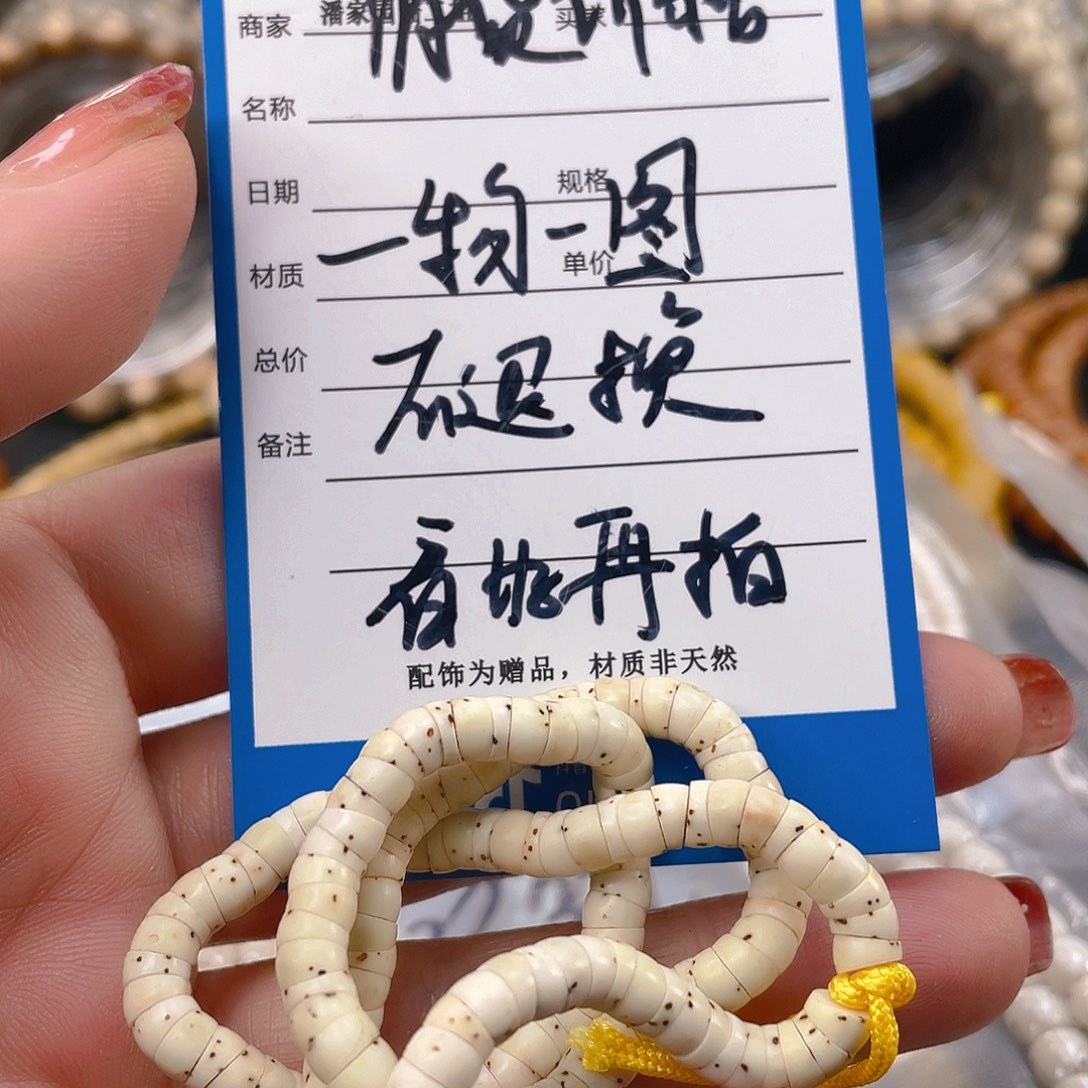 商家 潘家园
名称
日期 规格
一物一图
材质 单价
不退换
总价
备注
看好再拍
配饰为赠品，材质非天然